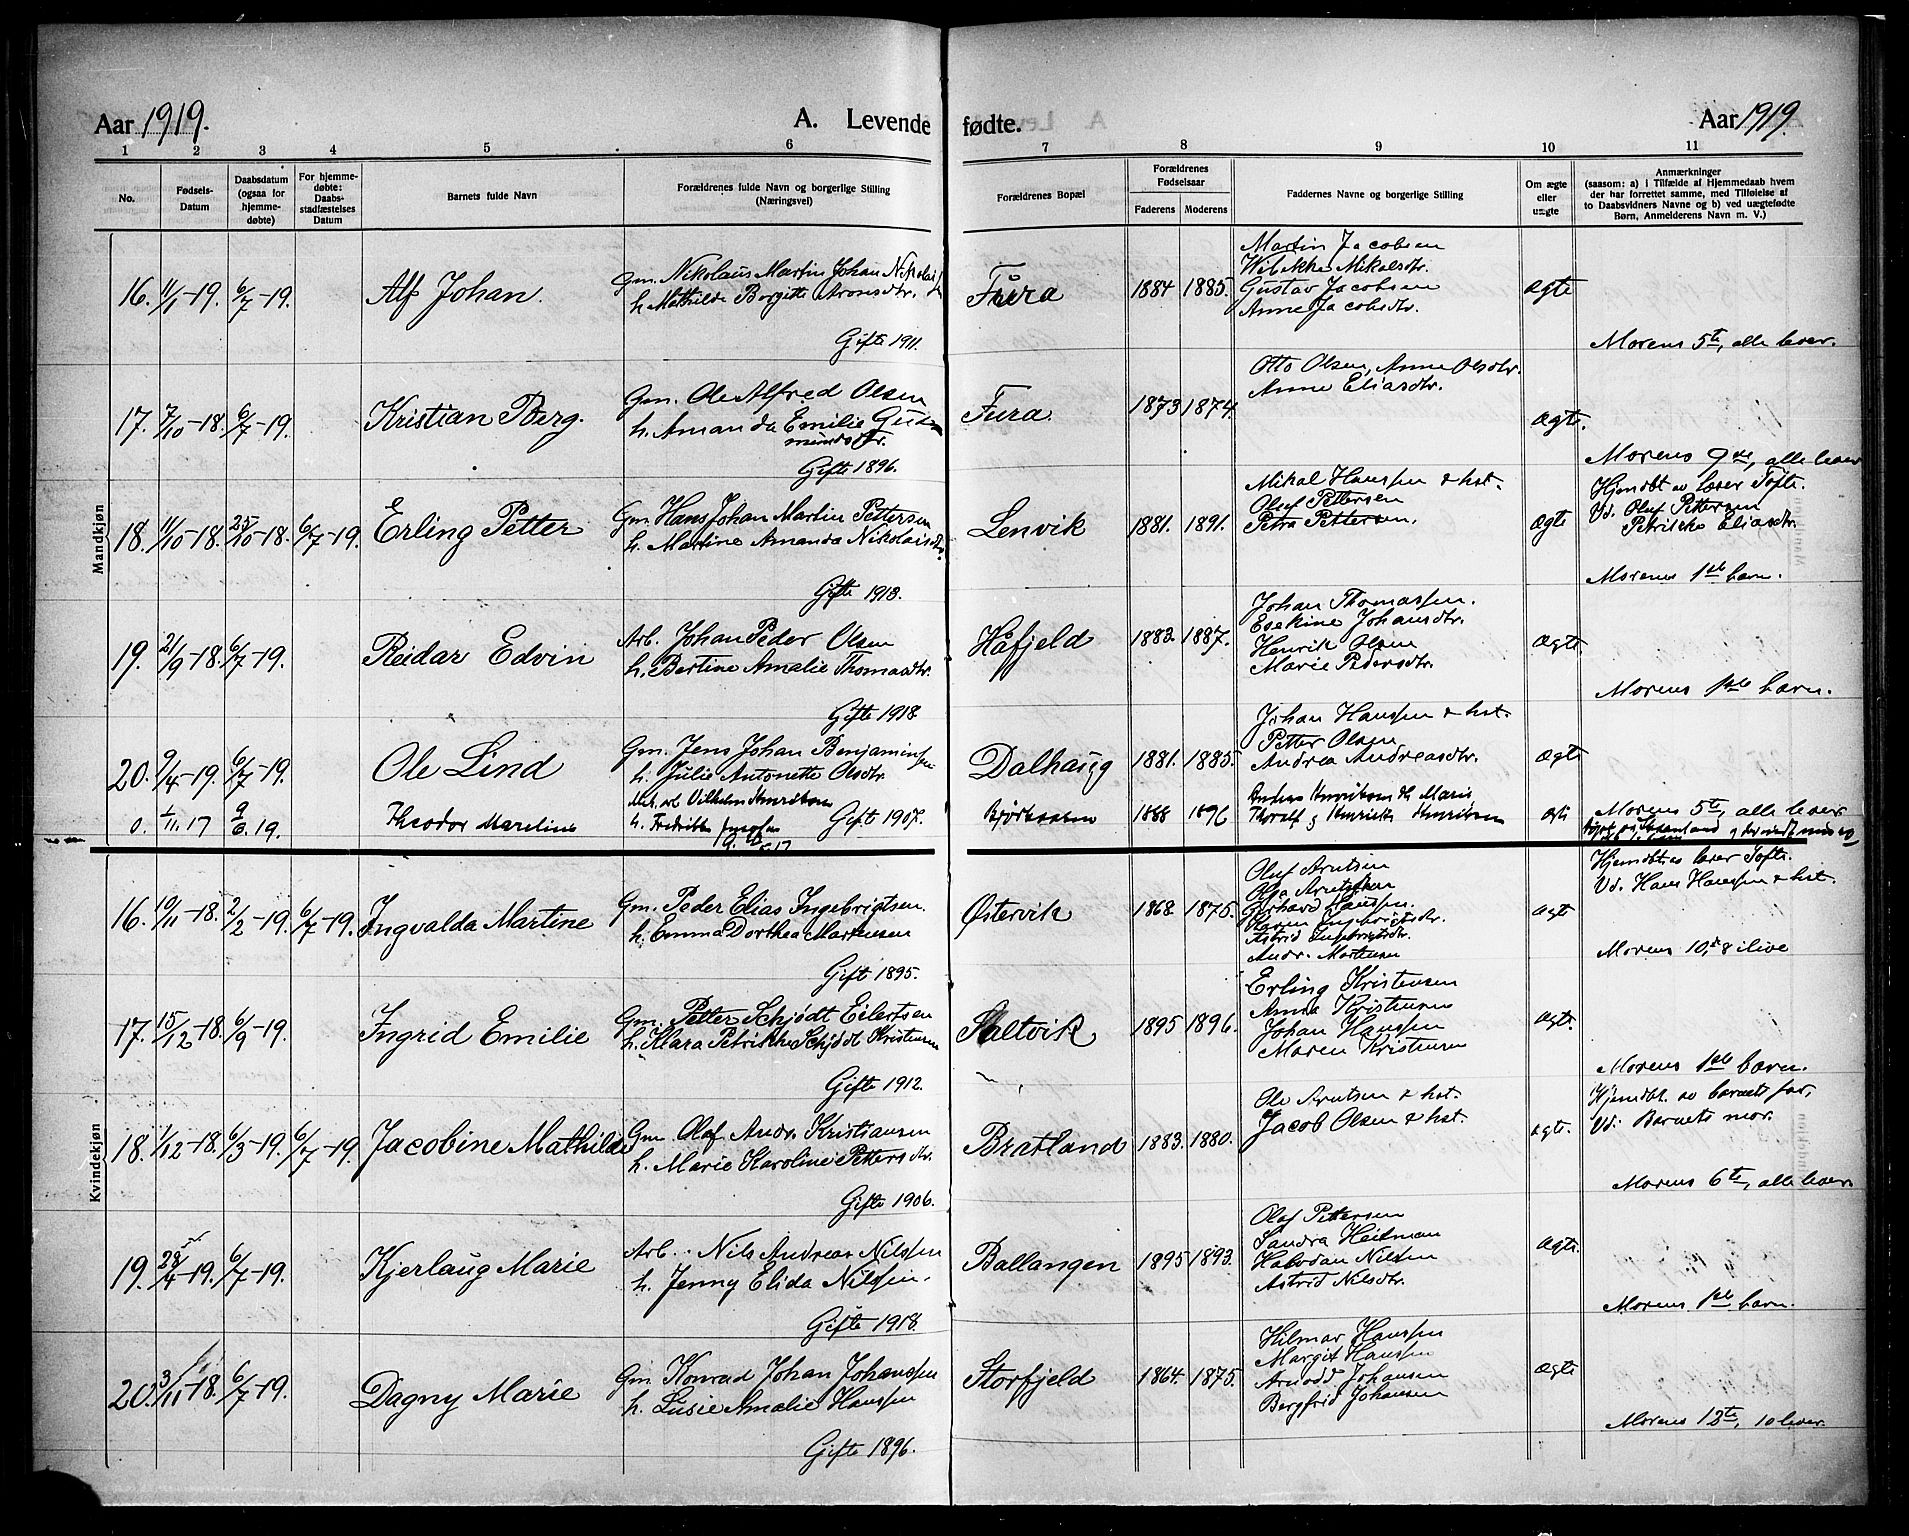 Aar 1919.
A. Levende fødte.
Aar 1919.
1 2 3 4 5 6 7 8 9 10 11
No.
Fødsels-
Datum
Daabsdatum
(ogsaa for
hjemme-
døbte)
For hjemme-
døbte:
Daabs-
stadfæstelses
Datum
Barnets fulde Navn
Forældrenes fulde Navn og borgerlige Stilling
(Næringsvei)
Forældrenes Bopæl
Forældrenes
Fødselsaar
Faderens Moderens
Faddernes Navne og borgerlige Stilling
Om ægte
eller
uægte
Anmærkninger
(saasom: a) i Tilfælde af Hjemmedaab hvem
der har forrettet samme, med Tilføielse af
to Daabsvidners Navne og b) ved uægtefødte
Børn, Anmelderens Navn m. V.)
Mandkjøn
16. 11/1-19. 6/7-19. Alf Johan.
Gm. Nikolaus Martin Johan
h. Mathilde Borgitte Aronsdtr.
Gifte 1911.
Fura 1884 1885.
Martin Jacobsen
Wibekke Mikalsdtr.
Gustav Jacobsen
Anne Jacobsdtr.
ægte
Morens 5te, alle lever.
17. 7/10-18. 6/7-19. Kristian Berg.
Gm. Ole Alfred Olsen
h. Amanda Emilie Gud
mundsdtr.
Gifte 1896.
Fura. 1873 1874.
Otto Olsen, Anne Olsdtr.
Anne Eliasdtr.
ægte.
Morens 9de, alle lever
18. 11/10-18. 25/10-18. 6/7-19. Erling Petter
Gm. Hans Johan Martin Pettersen
h. Martine Amanda Nikolaisdtr.
Gifte 1918.
Lenvik 1881. 1891.
Mikal Hanssen & hst.
Oluf Pettersen
Petra Pettersen.
ægte
Hjemdbt av lærer Tofte.
Vd. Oluf Pettersen
Petrikke Eliasdtr.
Morens 1ste barn.
19. 21/9-18. 6/7-19. Reidar Edvin
Arb. Johan Peder Olsen
h. Bertine Amalie Thomasdtr.
Gifte 1918.
Håfjeld 1882. 1887.
Johan Thomassen.
Esekine Johansdtr.
Henrik Olsen
Marie Pedersdtr.
ægte
Morens 1ste barn.
20. 9/4-19. 6/7-19. Ole Lind
Gm. Jens Johan Benjaminsen
h. Julie Antonette Olsdtr
Gift 1907.
Dalhaug 1881. 1885.
Johan Hanssen & hst.
Petter Olsen
Andrea Andreasdtr.
ægte
Morens 5te, alle lever
0. 1/11.17 9/6.19. Theodor Mareline
Vilhelm Henriksen
h. Fredrikke
Bjørkaasen 1888 1896
Anders Henriksen Marie
Thoralf og Henrikke Henriksen
ægte
Kvindekjøn
16. 10/11-18. 2/2-19. 6/7-19. Ingvalda Martine
Gm. Peder Elias Ingebrigtsen.
h. Emma Dorthea Martensen
Gift 1895.
Østervik 1868. 1875.
Oluf Arntsen
Olga Arntsen
Gerhard Hanssen.
Karen Ingebrigtsdtr.
Astrid Ingebrigtsdtr.
Andr. Mortensen
ægte
Hjemdbt av lærer Tofte.
Vd. Hans Hanssen & hst.
Morens 10de, 8 ilive
17. 15/12-18. 6/9-19. Ingrid Emilie
Gm. Petter Schjødt Eilertsen
h. Klara Petrikke Schjödt Kristensen
Gifte 1912.
Saltvik 1895 1896.
Erling Kristensen
Anna Kristensen
Johan Hanssen
Maren Kristensen
ægte.
Morens 1ste barn.
18. 1/12-18. 6/3-19. 6/7-19. Jacobine Mathilde
Gm. Olaf Andr. Kristiansen
h. Marie Karoline Pettersdtr.
Gifte 1906.
Bratland 1883. 1880.
Ole Arntsen & hst.
Jacob Olsen & hst.
ægte.
Hjemdbt. av barnets far,
Vd. Barnets mor.
Morens 6te, alle lever
19. 28/4-19. 6/7-19. Kjerlaug Marie
Arb. Nils Andreas Nilssen
h. Jenny Elida Nilssen.
Gifte 1918.
Ballangen 1895 1893.
Olaf Pettersen
Sandra Heitman
Halvdan Nilsen
Astrid Nilsdtr.
ægte
Morens 1ste barn.
20. 3/11-18. 6/7-19. Dagny Marie
Gm. Konrad Johan Johanssen
h. Lusie Amalie Hanssen
Gifte 1896.
Storfjeld 1864. 1875.
Hilmar Hanssen
Margit Hanssen
Arnodd Johansen
Bergfrid Johansen
ægte
Morens 12te, 10 lever.